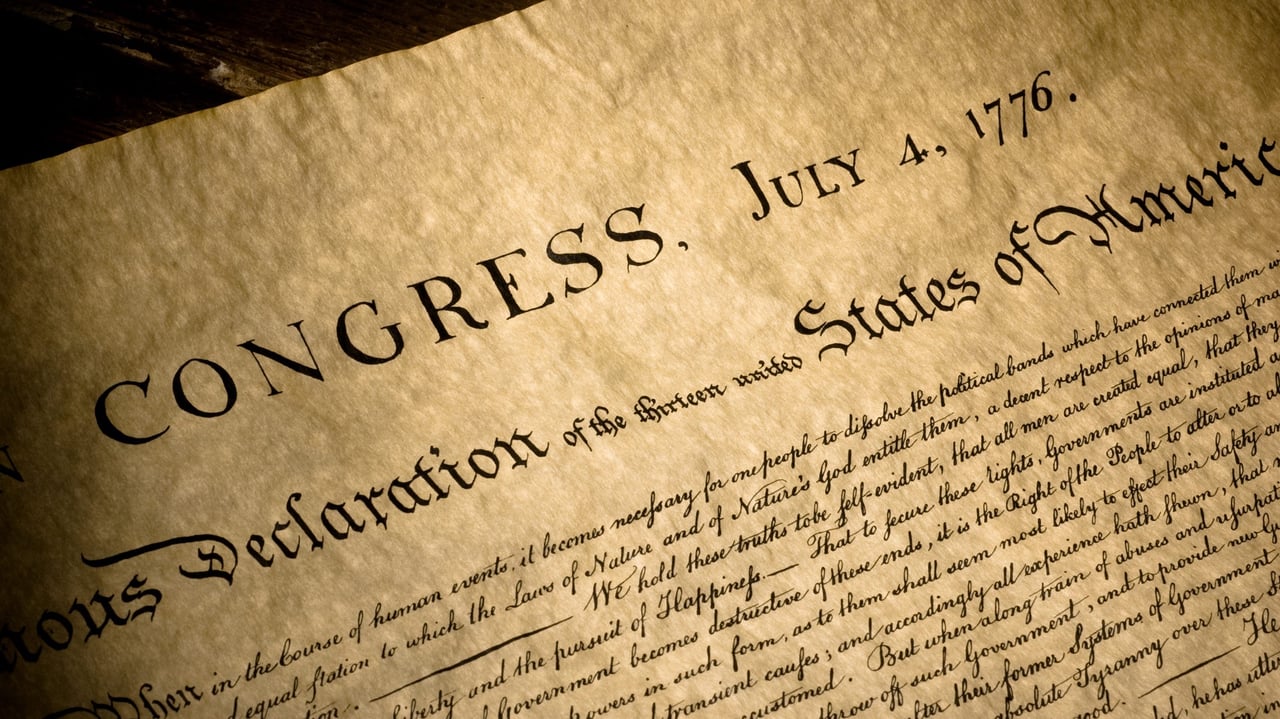 N CONGRESS, JULY 4, 1776.
mous Declaration of the thirteen united States of Americ
When in the Course of human events, it becomes necessary for one people to dissolve the political bands which have connected them
equal station to which the Laws of Nature and of Nature's God entitle them, a decent respect to the opinions of
tion. We hold these truths to be self-evident, that all men are created equal, that they
liberty and the pursuit of Happiness.— That to secure these rights, Governments are instituted
Government becomes destructive of these ends, it is the Right of the People to alter or to
powers in such form, as to them shall seem most likely to effect their Safety
transient causes; and accordingly all experience hath shewn, that
customed. But when a long train of abuses and usurpat
throw off such Government, and to provide new
after their former Systems of Government
absolute Tyranny over these
good. He
he has utter